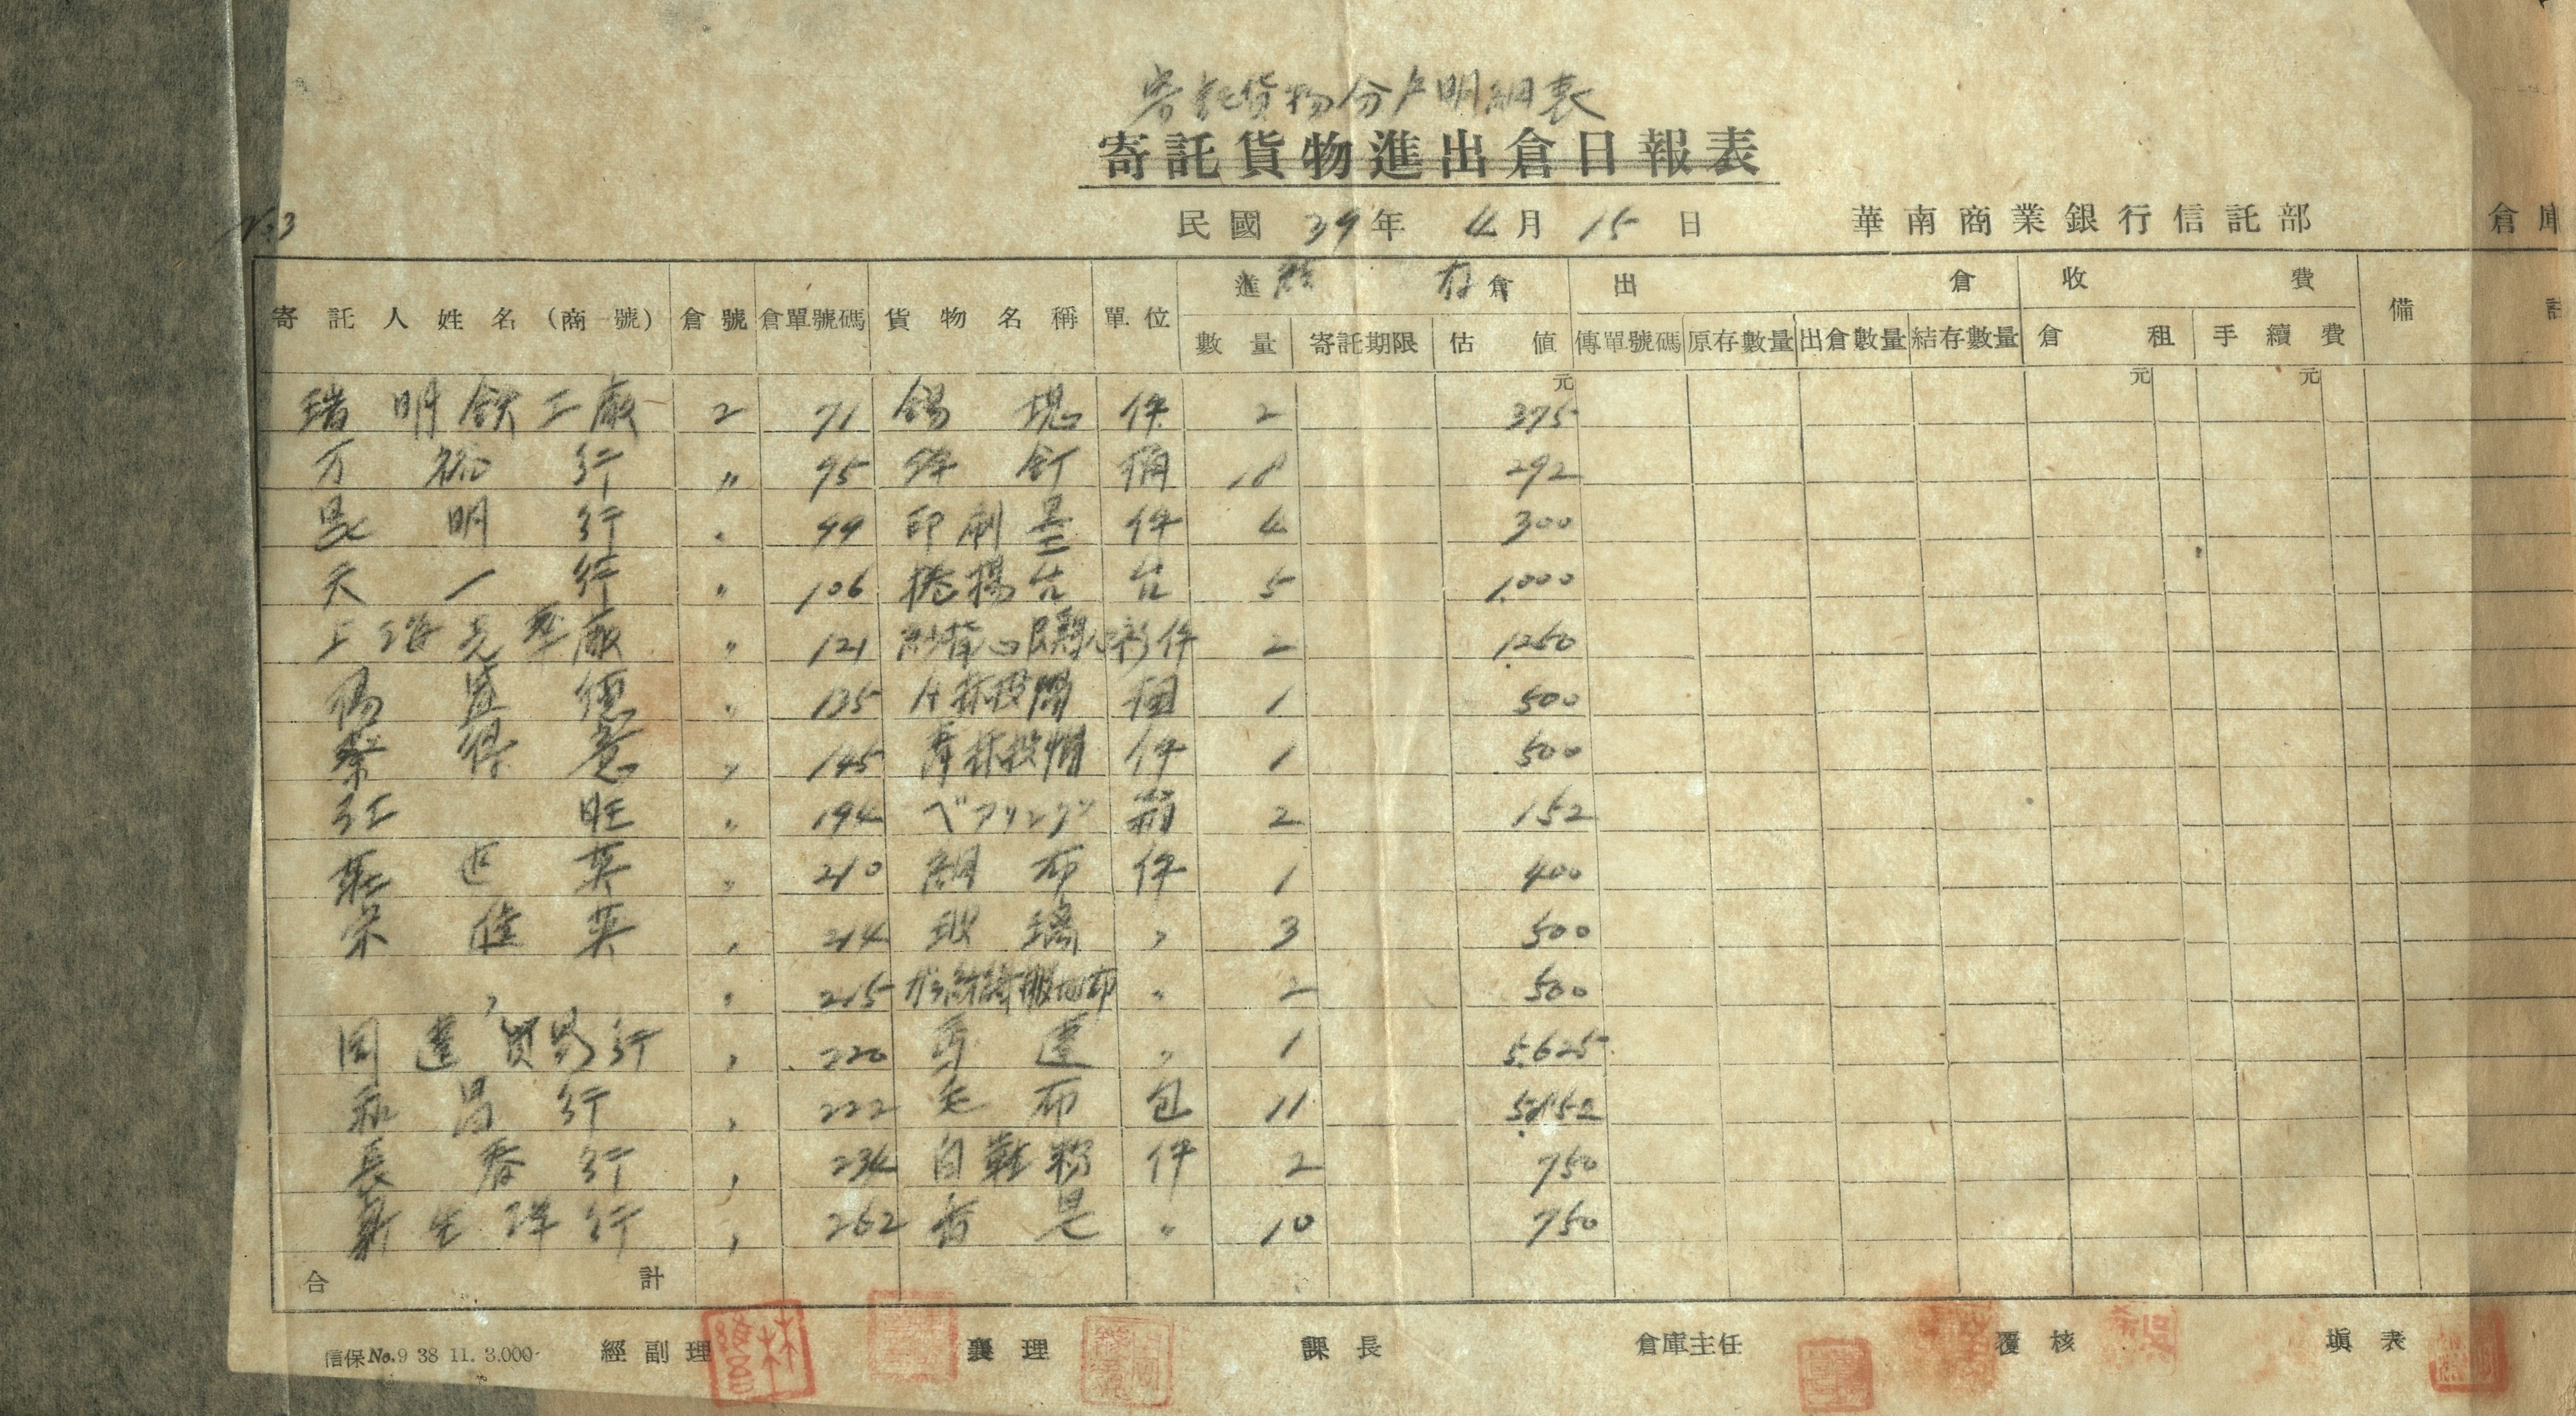 寄託貨物分戶明細表
寄託貨物進出倉日報表
No.3
民國 39 年 4 月 15 日 華南商業銀行信託部 倉庫
寄託人姓名(商號) 倉號 倉單號碼 貨物名稱 單位 進 結 存 倉 出 倉 收 費 備 註
數量 寄託期限 估值 傳單號碼 原存數量 出倉數量 結存數量 倉租 手續費
元 元 元
瑞明鉄工廠 2 71 錫塊 件 2 375
万 行 〃 95 洋釘 桶 18 292
昆明行 〃 99 印刷 件 4 300
天一行 〃 106 捲揚台 台 5 1,000
上海 廠 〃 121 件 2 1,250
楊 德 〃 135 個 1 500
蔡得意 〃 145 件 1 500
江旺 〃 194 ベアリング 箱 2 152
莊 英 〃 210 布 件 1 400
榮 英 〃 214 玻璃 〃 3 500
〃 〃 215 布 〃 2 500
同達貿易行 〃 220 馬達 〃 1 5,625
和昌行 〃 222 毛布 包 11
長春行 〃 234 白鞋粉 件 2 750
新生洋行 〃 262 〃 10 750
合計
信保No.9 38 11. 3.000 經副理 襄理 課長 倉庫主任 覆核 填表